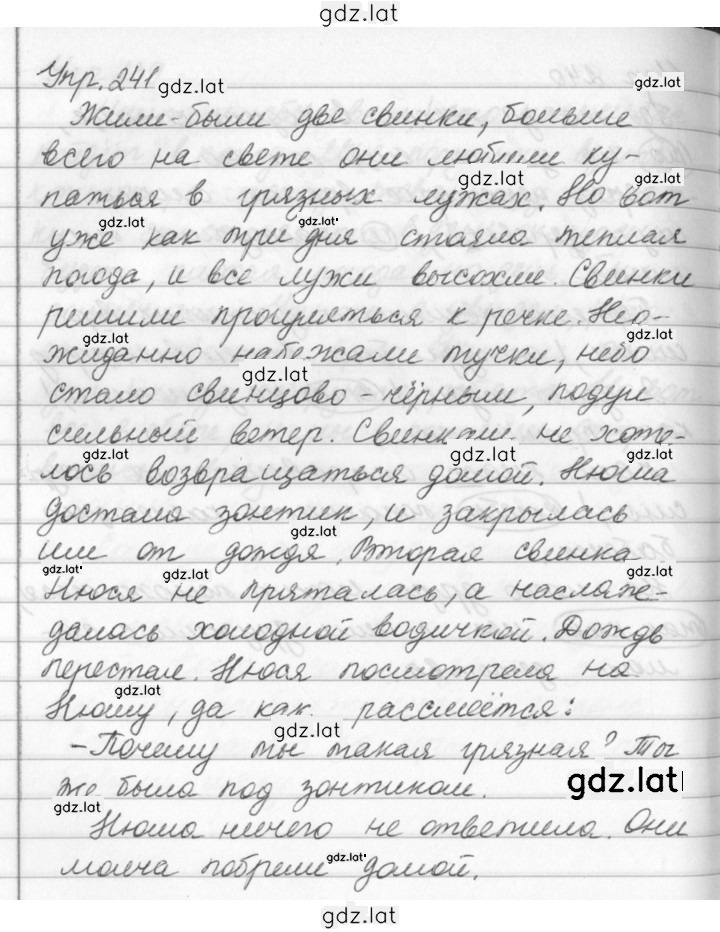 gdz.lat
Упр. 241
gdz.lat
gdz.lat
Жили-были две свинки, больше
всего на свете они любили ку-
gdz.lat
gdz.lat
паться в грязных лужах. Но вот
gdz.lat
gdz.lat
уже как три дня стояла теплая
погода, и все лужи высохли. Свинки
решили прогуляться к речке. Нео-
gdz.lat
gdz.lat
жиданно набежали тучки, небо
gdz.lat
стало свинцово-чёрным, подул
сильный ветер. Свинкам не хоте-
gdz.lat
gdz.lat
gdz.lat
лось возвращаться домой. Нюша
достала зонтик, и закрылась
gdz.lat
им от дождя. Вторая свинка
gdz.lat
gdz.lat
gdz.lat
Нюся не пряталась, а наслаж-
далась холодной водичкой. Дождь
gdz.lat
gdz.lat
перестал. Нюся посмотрела на
gdz.lat
Нюшу, да как рассмеётся:
gdz.lat
-Почему ты такая грязная? Ты
же была под зонтиком.
gdz.lat
gdz.lat
Нюша ничего не ответила. Они
молча побрели домой.
gdz.lat
gdz.lat
gdz.lat
gdz.lat